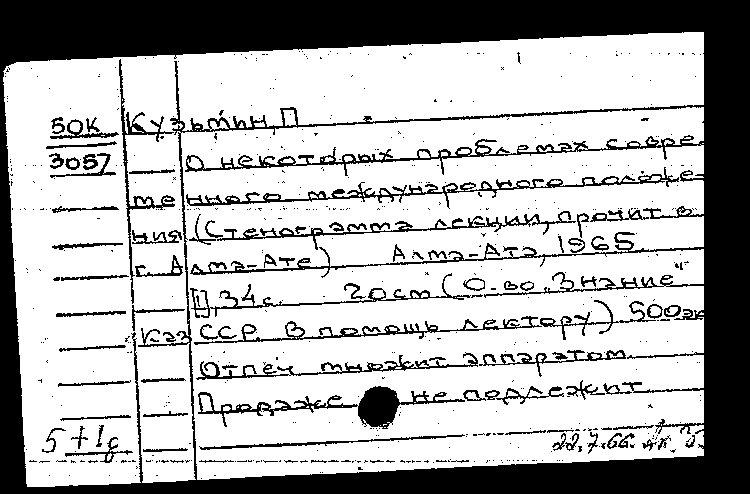 50К Кузьмин, П
3057 О некоторых проблемах совре-
менного международного положе-
ния (Стенограмма лекции, прочит в
г. Алма-Ате) Алма-Ата, 1965
[1], 34с. 20см (О-во „Знание"
Каз ССР. В помощь лектору) 500эк
Отпеч множит аппаратом
Продаже не подлежит
5+1
22.7.66.